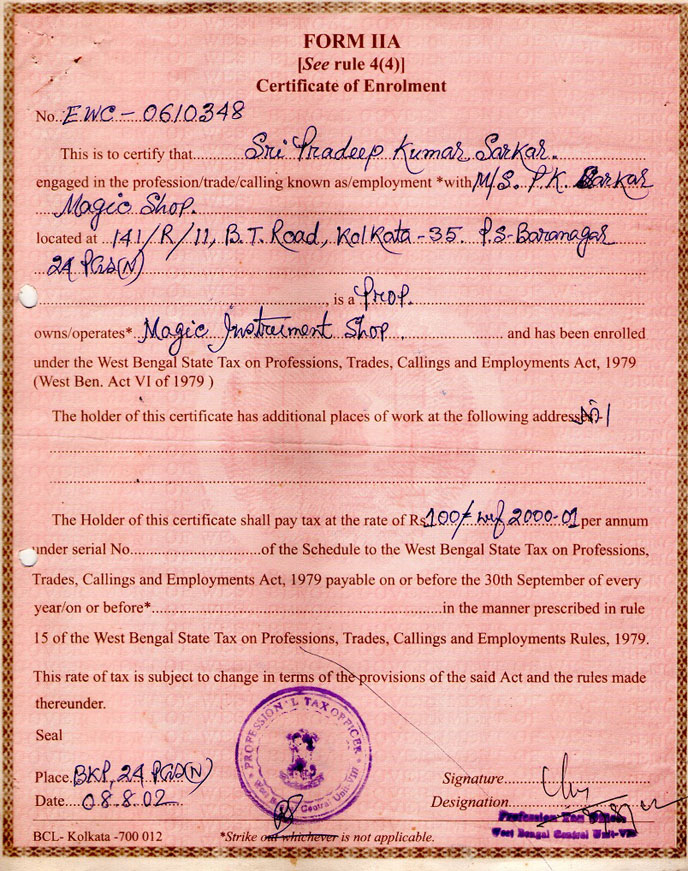 FORM IIA
[See rule 4(4)]
Certificate of Enrolment
No. EWC - 0610348
This is to certify that Sri Pradeep Kumar Sarkar.
engaged in the profession/trade/calling known as/employment *with M/S. P.K. Sarkar
Magic Shop.
located at 141/R/11, B.T. Road, Kolkata-35. P.S-Baranagar
24 PGS(N)
, is a Prop.
owns/operates* Magic Instrument Shop. and has been enrolled
under the West Bengal State Tax on Professions, Trades, Callings and Employments Act, 1979
(West Ben. Act VI of 1979 )
The holder of this certificate has additional places of work at the following addresses
The Holder of this certificate shall pay tax at the rate of Rs 100/- wef 2000-01 per annum
under serial No. of the Schedule to the West Bengal State Tax on Professions,
Trades, Callings and Employments Act, 1979 payable on or before the 30th September of every
year/on or before* in the manner prescribed in rule
15 of the West Bengal State Tax on Professions, Trades, Callings and Employments Rules, 1979.
This rate of tax is subject to change in terms of the provisions of the said Act and the rules made
thereunder.
Seal
PROFESSIONAL TAX OFFICER
West Bengal Central Unit-VIII
Place. BKP, 24 PGS(N)
Signature
Date 08.8.02
Designation
Profession Tax Officer
West Bengal Central Unit-VIII
BCL- Kolkata -700 012
*Strike out whichever is not applicable.